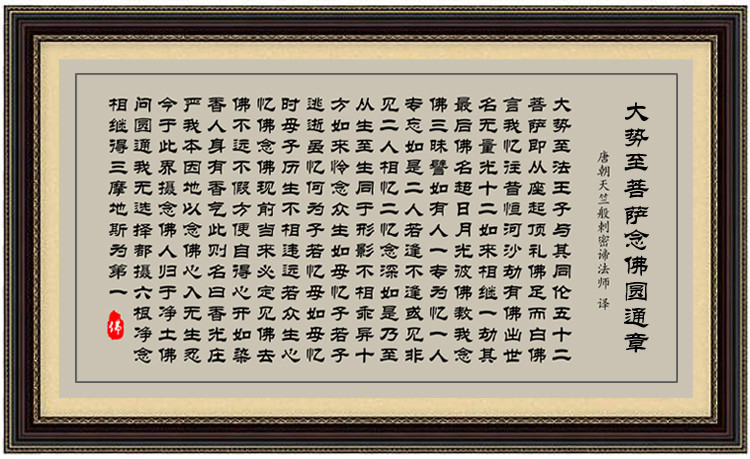 大势至菩萨念佛圆通章
唐朝天竺般刺密谛法师 译
大势至法王子与其同伦五十二
菩萨即从座起顶礼佛足而白佛
言我忆往昔恒河沙劫有佛出世
名无量光十二如来相继一劫其
最后佛名超日月光彼佛教我念
佛三昧譬如有人一专为忆一人
专忘如是二人若逢不逢或见非
见二人相忆二忆念深如是乃至
从生至生同于形影不相乖异十
方如来怜念众生如母忆子若子
逃逝虽忆何为子若忆母如母忆
时母子历生不相违远若众生心
忆佛念佛现前当来必定见佛去
佛不远不假方便自得心开如染
香人身有香气此则名曰香光庄
严我本因地以念佛心入无生忍
今于此界摄念佛人归于净土佛
问圆通我无选择都摄六根净念
相继得三摩地斯为第一
佛